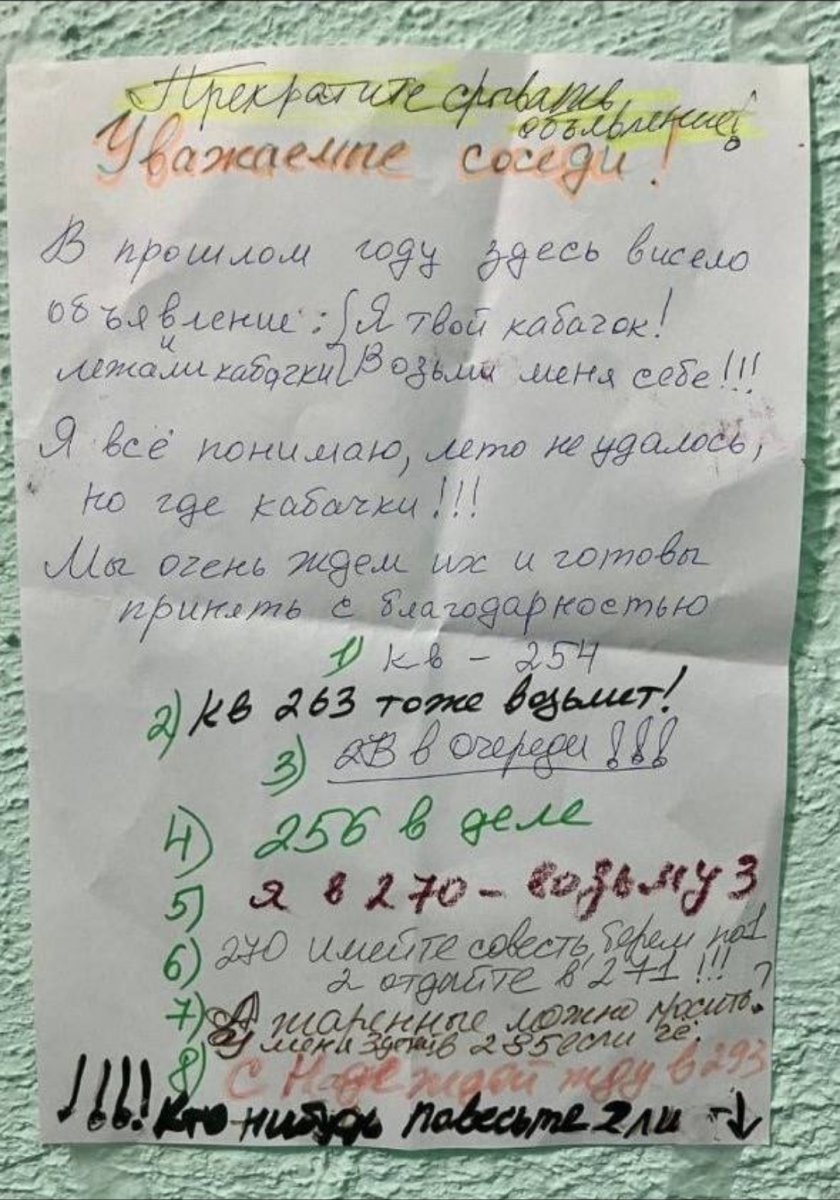 Прекратите срывать
объявление!
Уважаемые соседи!
В прошлом году здесь висело
объявление: Я твой кабачок!
и
лежали кабачки Возьми меня себе!!!
Я всё понимаю, лето не удалось,
но где кабачки!!!
Мы очень ждем их и готовы
принять с благодарностью
1) кв - 254
2) кв 263 тоже возьмет!
3) в очереди!!!
4) 256 в деле
5) я в 270 - возьму 3
6) 270 имейте совесть, берем по 1
2 отдайте в 271!!! ?
7) А жаренные можно просить.
У меня в 285 если чё.
8) С Надеждой жду в 293
!!!! Кто нибудь повесьте 2 ли ↓